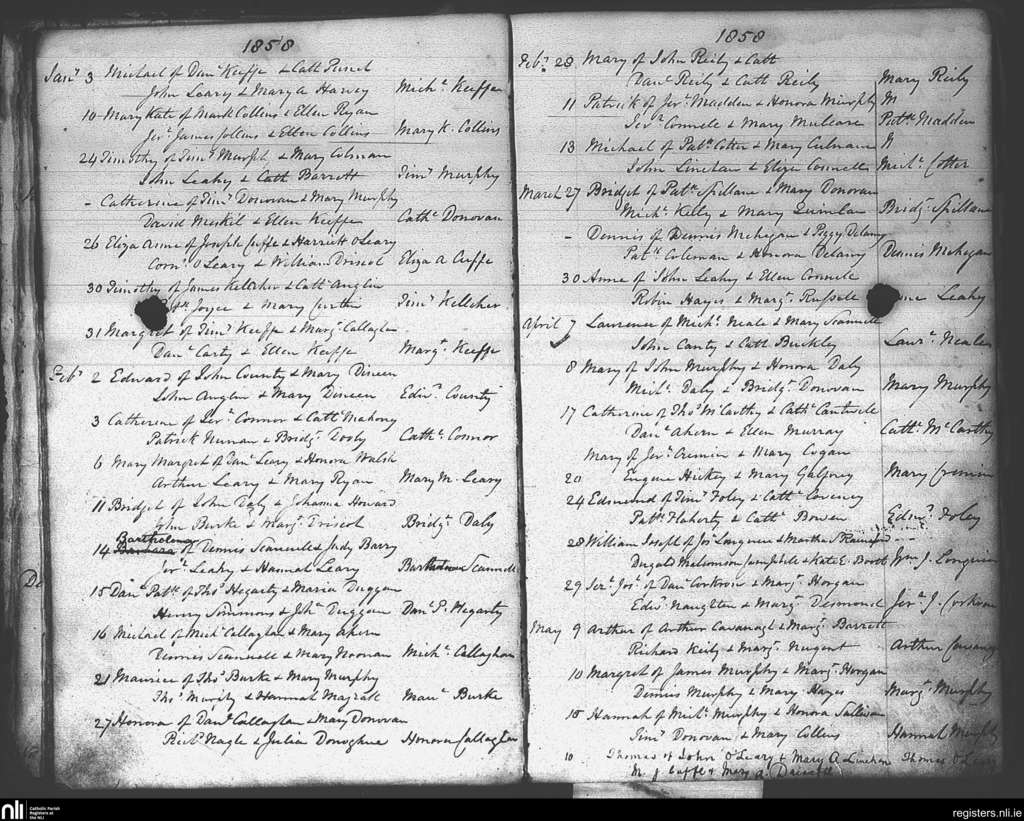 1858
Jany 3 Michael of Danl Keeffe & Cath
John Leary & Mary A Harvey Michl Keeffe
10 Mary Kate of Mark Collins & Ellen Ryan
Jerh James Collins & Ellen Collins Mary K. Collins
24 Timothy of Timy Murphy & Mary Colman
John Leahy & Cath Barrett Timy Murphy
- Catherine of Timy Donovan & Mary Murphy
David Meskil & Ellen Keeffe Cathe Donovan
26 Eliza Anne of Joseph Cuffe & Harriett OLeary
Corns OLeary & William Driscol Eliza A Cuffe
30 Timothy of James Kelleher & Cath Anglin
Joyce & Mary Curtin Timy Kelleher
31 Margret of Timy Keeffe & Margt Callaghan
Danl Carty & Ellen Keeffe Margt Keeffe
Feby 2 Edward of John County & Mary Dineen
John Anglin & Mary Dineen Edwd County
3 Catherine of Jerh Connor & Cath Mahony
Patrick & Bridgt Cathe Connor
6 Mary Margret of Danl Leary & Honora Walsh
Arthur Leary & Mary Ryan Mary M. Leary
11 Bridget of John Daly & Johanna Howard
John Burke & Margt Driscol Bridgt Daly
Bartholomew
14 Barbara of Dennis Scannell & Judy Barry
Jerh Leahy & Hannah Leary Bartholomew Scannell
15 Danl Patk of Thos Hegarty & Maria Duggan
Henry Simmons & Duggan Danl P. Hegarty
16 Michael of Michl Callaghan & Mary Ahern
Dennis Scannell & Mary Noonan Michl Callaghan
21 Maurice of Thos Burke & Mary Murphy
Thos & Hannah Magrath Maue Burke
27 Honora of Danl Callaghan & Mary Donovan
Nagle & Julia Donoghue Honora Callaghan
1858
Feby 28 Mary of John Reily & Cath
Danl Reily & Cath Reily Mary Reily
11 Patrick of Jerh Madden & Honora Murphy M
Jerh Connele & Mary Mulcare Patk Madden
13 Michael of Patk Cotter & Mary Culnane N
John Linehan & Eliza Connell Michl Cotter
March 27 Bridget of Patk Spillane & Mary Donovan
Michl Kelly & Mary Quinlan Bridgt Spillane
- Dennis of Dennis Mehegan & Peggy Delany
Patk Coleman & Honora Delany Dennis Mehegan
30 Anne of John Leahy & Ellen Connele
Robin Hayes & Margt Russele Anne Leahy
April 7 Laurence of Michl Neale & Mary Scannell
John Canty & Cath Buckley Laure Neale
8 Mary of John Murphy & Honora Daly
Michl Daly & Bridgt Donovan Mary Murphy
17 Catherine of Thos McCarthy & Cathe Cantwele
Danl Ahern & Ellen Murray Cathe McCarthy
Mary of Jerh Cremin & Mary Cogan
20 Eugene Hickey & Mary Galfrey Mary Cremin
24 Edmund of Timy Foley & Cathe Coveney
Patk Flaherty & Cathe Bowen Edmd Foley
28 William Joseph of Jos & Martha
Dugald & Kate E. Booth Wm J.
29 Jerh Jos of Danl Corkoran & Margt Horgan
Edwd Naughten & Margt Desmond Jerh J. Corkoran
May 9 Arthur of Arthur Cavanagh & Margt Barrett
Richard Reily & Margt Nugent Arthur Cavanagh
10 Margret of James Murphy & Margt Horgan
Dennis Murphy & Mary Hayes Margt Murphy
18 Hannah of Michl Murphy & Honora Sullivan
Timy Donovan & Mary Collins Hannah Murphy
10 Thomas of John O'Leary & Mary A Linehan Thomas O'Leary
M. J Cuffe & Mary A. Driscoll
nli
Catholic Parish
Registers at
the NLI
registers.nli.ie